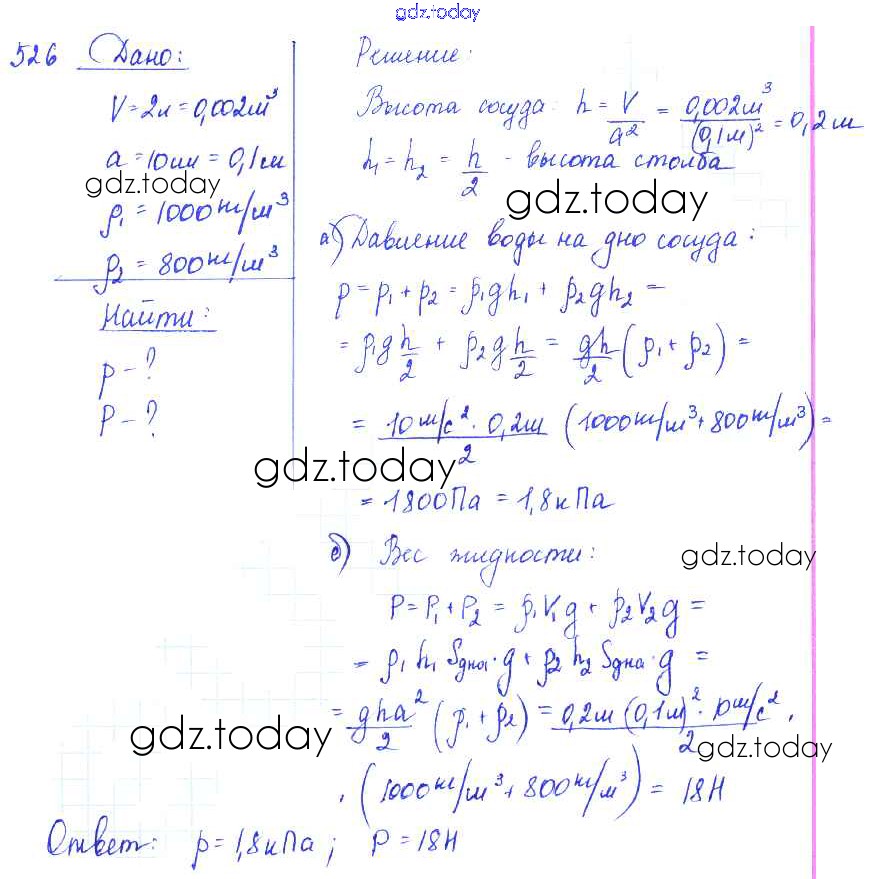 gdz.today
526 Дано:
V = 2л = 0,002м³
a = 10см = 0,1м
gdz.today
ρ₁ = 1000кг/м³
ρ₂ = 800кг/м³
Найти:
p - ?
P - ?
Решение:
Высота сосуда: h = V/a² = 0,002м³/(0,1м)² = 0,2м
h₁ = h₂ = h/2 - высота столба
gdz.today
а) Давление воды на дно сосуда:
p = p₁ + p₂ = ρ₁gh₁ + ρ₂gh₂ =
= ρ₁g h/2 + ρ₂g h/2 = gh/2 (ρ₁ + ρ₂) =
= 10м/с² · 0,2м/2 (1000кг/м³ + 800кг/м³) =
gdz.today
= 1800Па = 1,8кПа
б) Вес жидности:
gdz.today
P = P₁ + P₂ = ρ₁V₁g + ρ₂V₂g =
= ρ₁h₁Sдна·g + ρ₂h₂Sдна·g =
= gha²/2 (ρ₁ + ρ₂) = 0,2м (0,1м)² · 10м/с²/2 ·
gdz.today
gdz.today
· (1000кг/м³ + 800кг/м³) = 18Н
Ответ: p = 1,8кПа; P = 18Н